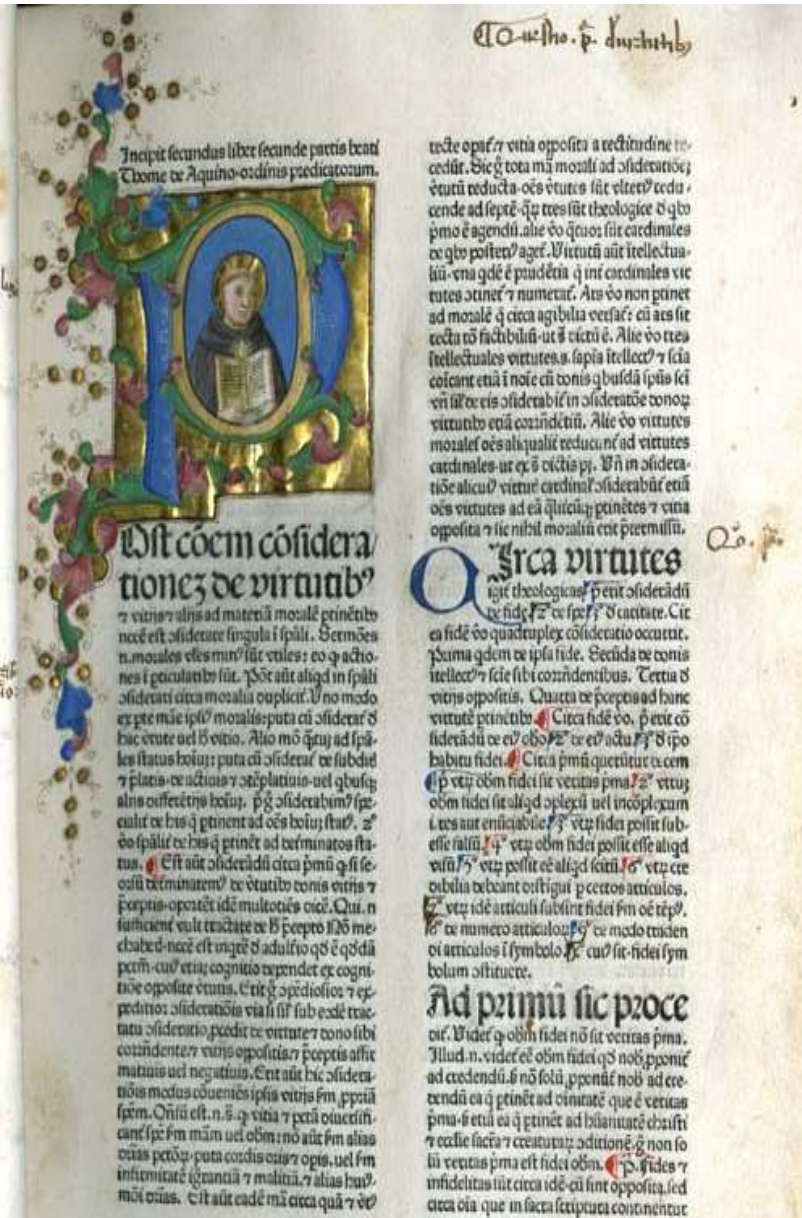 Incipit secundus liber secunde partis beati
Thome de Aquino ordinis predicatorum.
POst cōem cōsidera/
tionez de virtutibꝰ
⁊ vitijs ⁊ alijs ad materiā moralē ptinētibꝫ
necē est ↄsiderare singula ī spāli. Sermōes
n. morales vƚes minꝰ sūt vtiles: eo ꝙ actio-
nes ī pticularibꝫ sūt. Pōt aūt aliqd in spāli
ↄsiderari circa moralia dupliciƚ. Uno modo
ex pte māe ipsiꝰ moralis: puta cū ↄsideraƭ đ
hac v̄tute uel ħ vitio. Alio mō
les status hoīuꝫ: puta cū ↄsideraƭ de subdiƭ
⁊ p̄latis
alijs differētijs hoīuꝫ.
cialiƭ de his q̄ ptinent ad oēs hoīuꝫ statꝰ. 2º
v̄o spāliƭ de his q̄ ptinēt ad deƭminatos sta-
tus. Est aūt ↄsiderādū circa pmū ꝙ si se-
orsū deƭminaremꝰ de v̄tutibꝫ donis vitijs ⁊
p̄ceptis oporteƭ idē multotiēs dicē. Qui. n
sufficienƭ vult tractare de ħ p̄cepto Nō me-
chaberis
cognitio dependet ex cogni-
tiōe opposite v̄tutis. Erit g̊ ↄpēdiosior ⁊ ex-
peditior ↄsideratiōis via si siƚ sub eodē trac-
tatu ↄsideratio pcedit de virtute ⁊ dono sibi
corrn̄dente ⁊ vitijs oppositis ⁊ p̄ceptis affir
matiuis uel negatiuis. Erit aūt hic ↄsidera-
tiōis modus ↄueniēs ipsis vitijs ẜm ppriā
spēm. Oñsū est. n. s̄. ꝙ vitia ⁊ pctā diuersifi-
canƭ spē ẜm mām uel obm: nō aūt ẜm alias
dr̄ias pctōꝝ puta cordis oris ⁊ opis. uel ẜm
infirmitatē igrantiā ⁊ malitiā. ⁊ alias huiꝰ-
mōi dr̄ias. Est aūt eadē mā circa quā ⁊ v̄tꝰ
recte opaƭ ⁊ vitia opposita a rectitudine re-
cedūt. Sic g̊ tota mā morali ad ↄsideratiōeꝫ
v̄tutū reducta oēs v̄tutes sūt vlteriꝰ redu-
cende ad septē. qꝝ tres sūt theologice đ qbꝫ
pmo ē agendū. alie v̄o qtuor sūt cardinales
de qbꝫ posteriꝰ ageƭ. Uirtutū aūt ītellectua-
liū vna qdē ē prudētia q̄ inƭ cardinales vir
tutes ↄtineƭ ⁊ numeraƭ. Ars v̄o non ptinet
ad moralē q̄ circa agibilia versaƭ: cū ars sit
recta rō factibiliū ut s̄ dictū ē. Alie v̄o tres
ītellectuales virtutes. s. sapīa ītellectꝰ ⁊ scīa
cōicant etiā ī noīe cū donis qbusdā spūs scī
vn̄ siƚ de eis ↄsiderabiƭ in ↄsideratōe donoꝝ
virtutibꝫ etiā corrn̄dētiū. Alie v̄o virtutes
morales oēs aliqualiƭ reducunƭ ad virtutes
cardinales ut ex s̄ dictis pꝫ. Vn̄ in ↄsidera-
tiōe alicuiꝰ virtuƭ cardinaƚ ↄsiderabūƭ etiā
oēs virtutes ad eā qliscūqꝫ ptinētes ⁊ vitia
opposita ⁊ sic nihil moraliū erit p̄termissū.
QIrca virtutes
igiƭ theologicas p̄ erit ↄsiderādū
de fide 2º de spe 3º đ caritate. Cir
ca fidē v̄o quadruplex cōsideratio occurrit.
Prima qdem de ipsa fide. Secūda de donis
ītellectꝰ ⁊ scīe sibi corrn̄dentibus. Tertia đ
vitijs oppositis. Quarta de p̄ceptis ad hanc
virtutē ptinētibꝫ. Circa fidē v̄o. p̄ erit cō
siderādū de eiꝰ obō 2º de eiꝰ actu 3º đ ipō
habitu fidei. Circa pmū querūtur decem
p̄ vtꝝ obm fidei sit veritas pma. 2º vtrꝫ
obm fidei sit aliqd ↄplexū uel incōplexum
i. res aut enūciabile. 3º vtꝝ fidei possit sub-
esse falsū. 4º vtꝝ obm fidei possit esse aliqd
visū. 5º vtꝝ possit eē aliqd scitū. 6º vtꝝ cre
dibilia debeant distīgui p certos articulos.
7º vtꝝ idē articuli subsint fidei ẜm oē tēpꝰ.
8º de numero articuloꝝ. 9º de modo traden
di articulos ī symbolo xº cuiꝰ sit fidei sym
bolum ↄstituere.
Ad primū sic proce
diƭ. Uideƭ ꝙ obm fidei nō sit veritas pma.
Illud. n. videƭ eē obm fidei qđ nob pponiƭ
ad credendū. ẜ nō solū pponūƭ nob ad cre-
dendū ea q̄ ptinēt ad diuinitatē que ē veritas
pma. ẜ etiā ea q̄ ptinēt ad hūanitatē christi
⁊ ecclīe sacrā ⁊ creaturaꝝ ↄditionē. g̊ non so
lū veritas pma est fidei obm. P̄. fides ⁊
infidelitas sūt circa idē cū sint opposita. sed
circa oīa que in sacra scriptura continentur